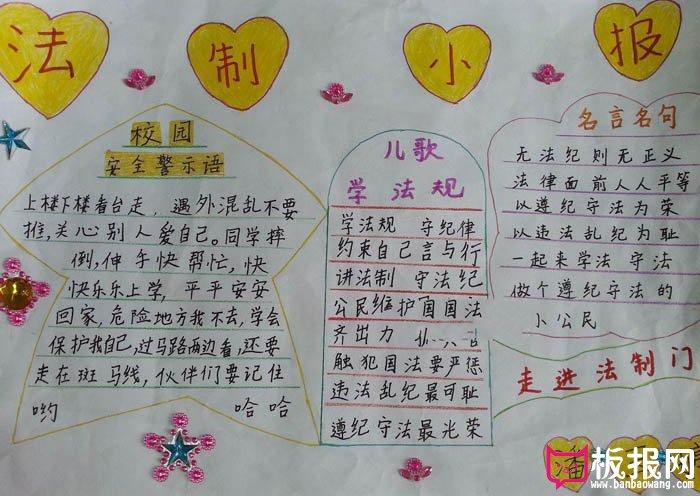 法制小报
校园
安全警示语
上楼下楼看台走，遇外混乱不要
推，关心别人爱自己。同学摔
倒，伸手快帮忙，快
快乐乐上学，平平安安
回家，危险地方我不去，学会
保护我自己，过马路两边看，还要
走在斑马线，伙伴们要记住
哟 哈哈
儿歌
学法规
学法规 守纪律
约束自己言与行
讲法制 守法纪
公民维护国国法
齐出力
触犯国法要严惩
违法乱纪最可耻
遵纪守法最光荣
名言名句
无法纪则无正义
法律面前人人平等
以遵纪守法为荣
以违法乱纪为耻
一起来学法守法
做个遵纪守法的
小公民
走进法制门
潘
板报网
www.banbaowang.com